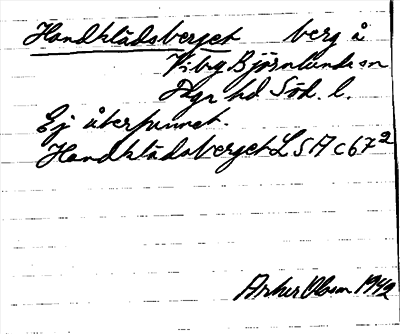 Handklädsberget berg å
Viby Björnlunda sn
Dgr hd Söd. l.
Ej återfunnet.
Handklädsberget LSA C67²
Olsson 1942